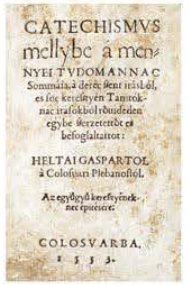 CATECHISMVS
mellybe a men-
NYEI TVDOMANNAC
Sommaia, a derec ſent irásból,
es ſoc kereſtyén Tanitok-
nac irásokból rőuideden
egybe ſerzetettőt es
béfoglaltatot:
HELTAI GASPARTOL
à Coloſuari Plebanoſtól.
Az együgyű kereſtyének-
nec építésére.
COLOSVARBA,
1553.